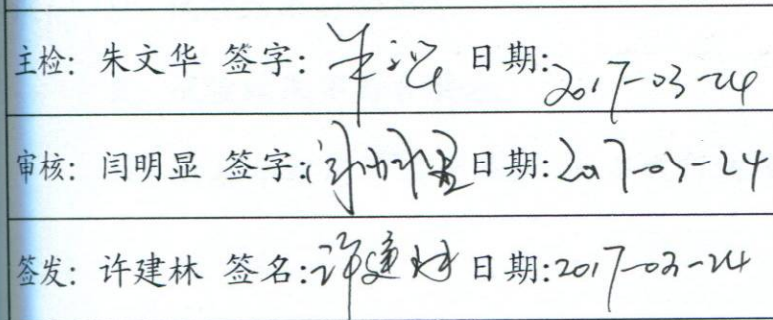 主检: 朱文华 签字: 日期: 2017-03-24
审核: 闫明显 签字: 闫明显 日期: 2017-03-24
签发: 许建林 签名: 许建林 日期: 2017-03-24